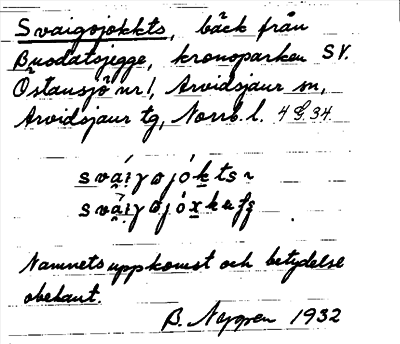 Svaigojokkts, bäck från
Busdatsjegge, kronoparken SV.
Östansjö nr 1, Arvidsjaur sn,
Arvidsjaur tg, Norrb. l. 4 G. 34
Namnets uppkomst och betydelse
obekant.
B. Nygren 1932